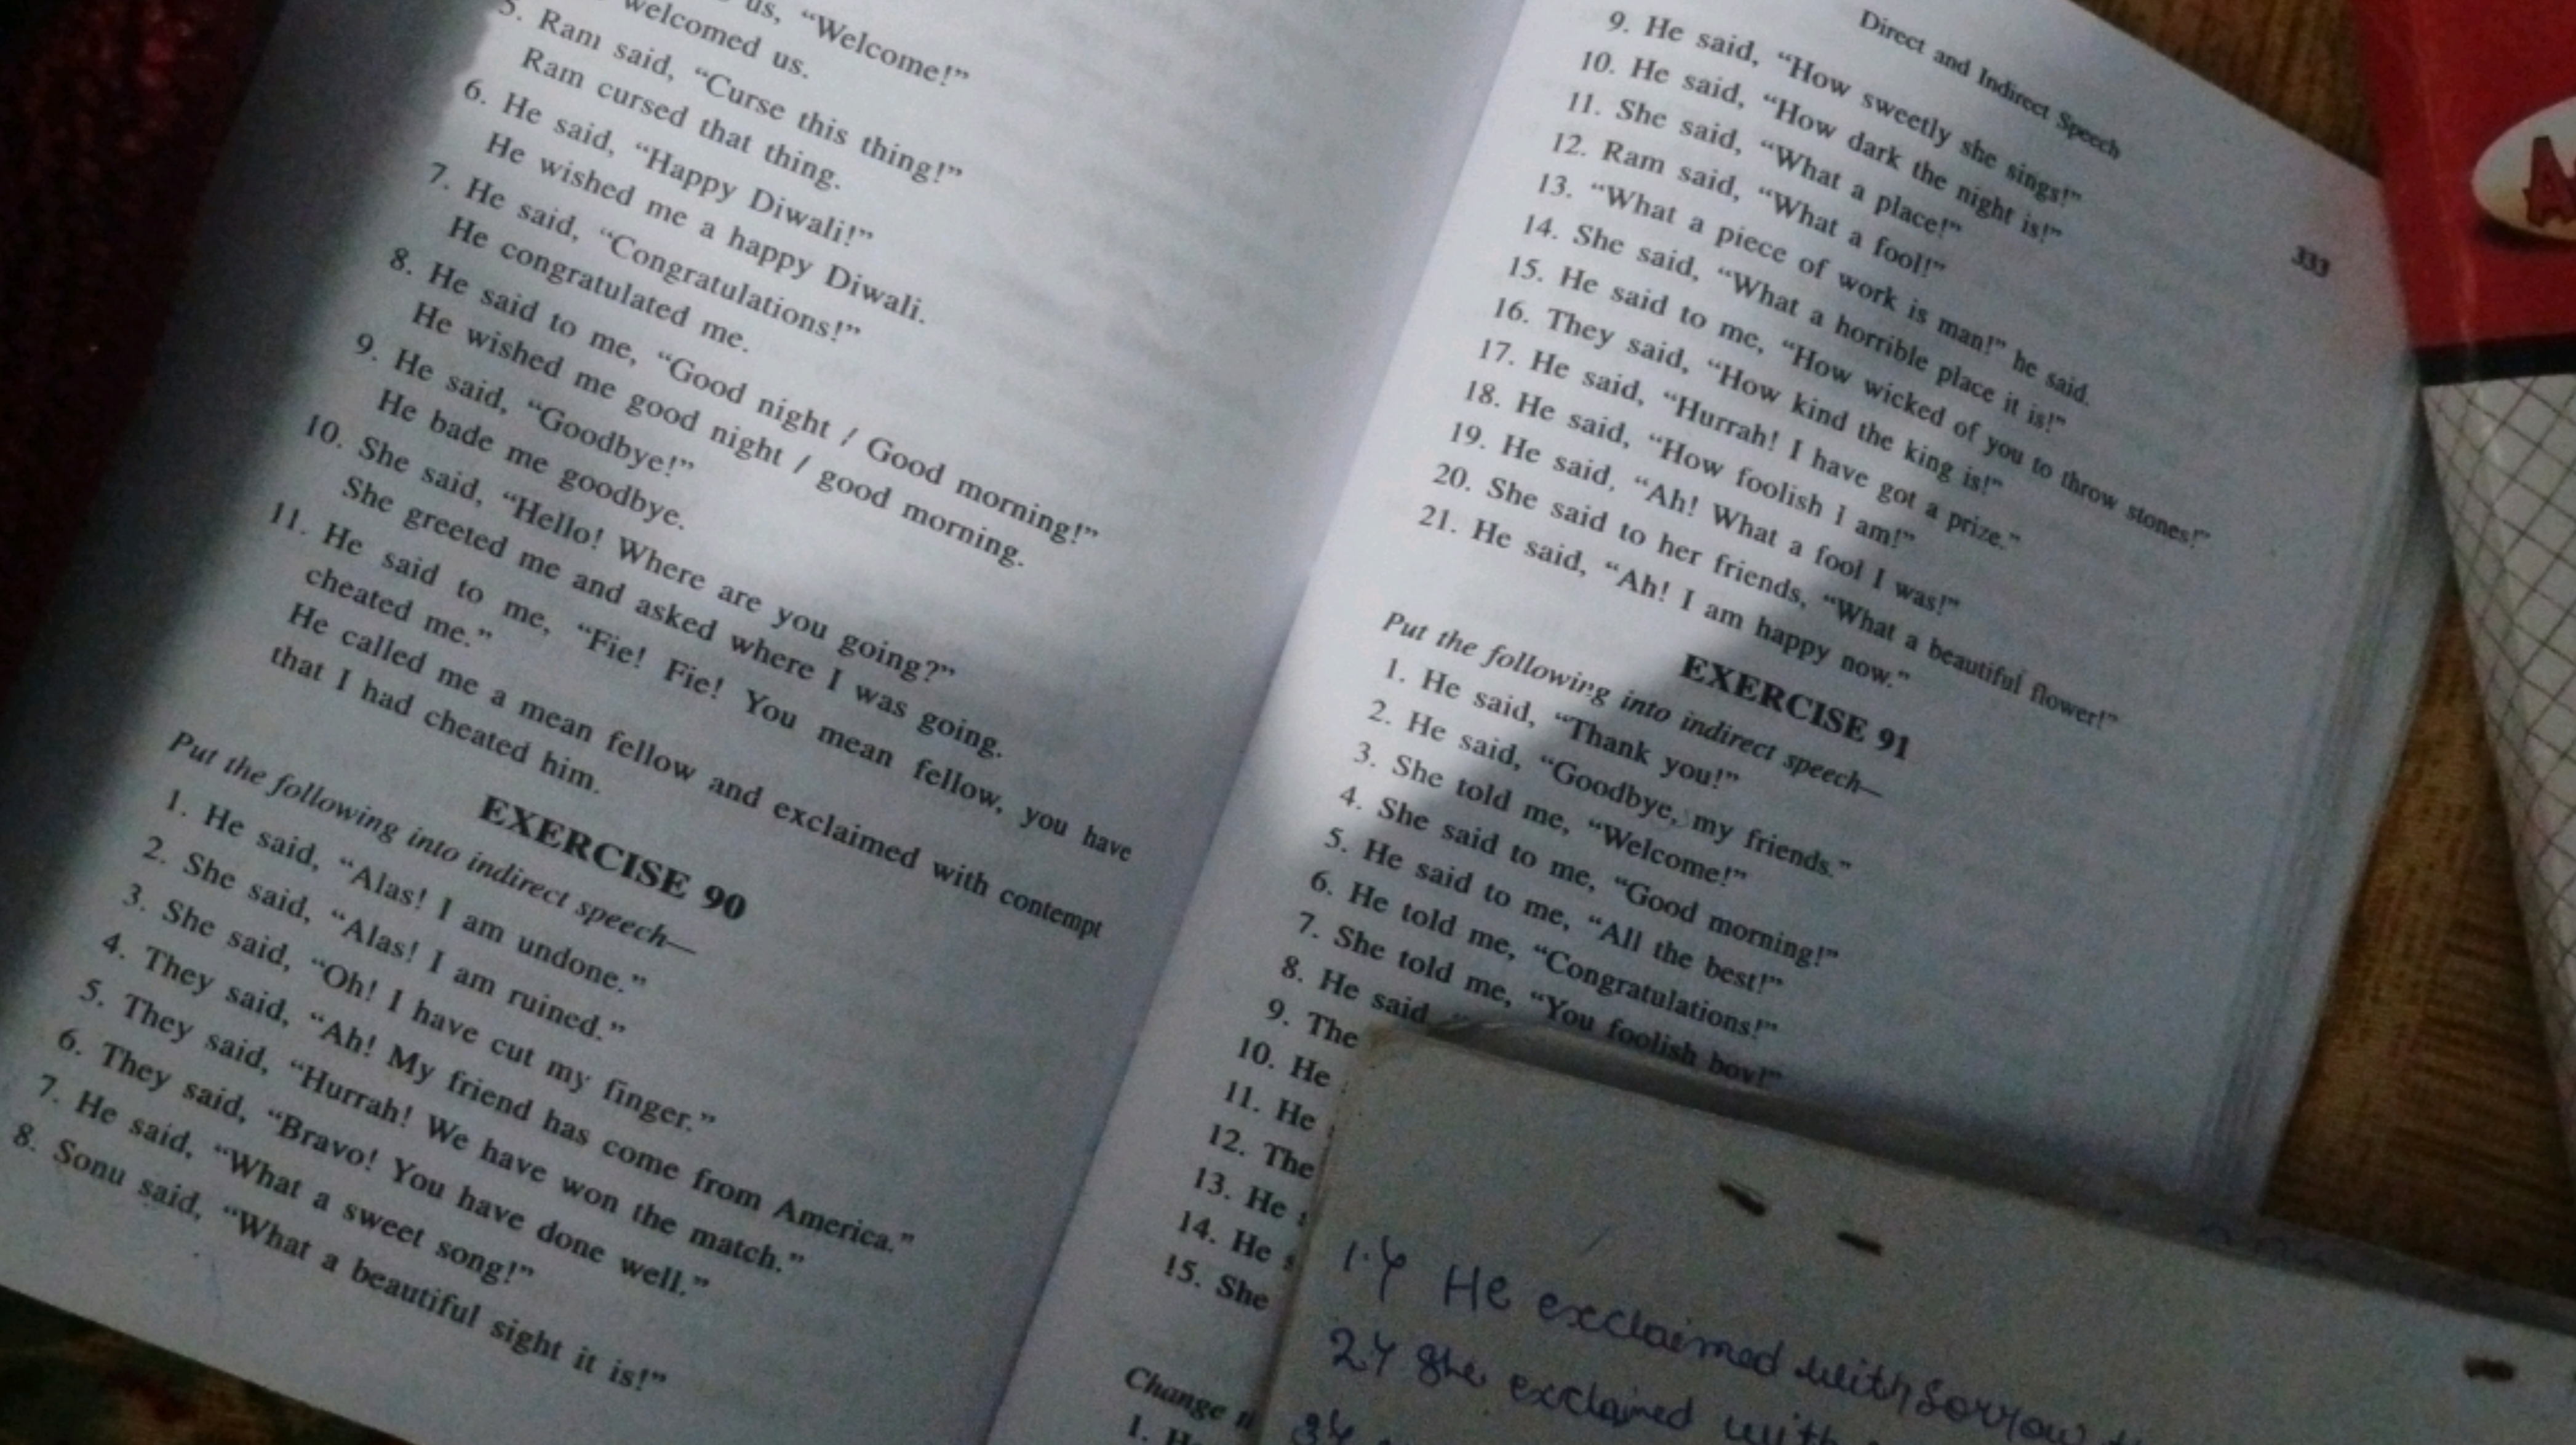 us, “Welcome!”
welcomed us.
5. Ram said, “Curse this thing!”
Ram cursed that thing.
6. He said, “Happy Diwali!”
He wished me a happy Diwali.
7. He said, “Congratulations!”
He congratulated me.
8. He said to me, “Good night / Good morning!”
He wished me good night / good morning.
9. He said, “Goodbye!”
He bade me goodbye.
10. She said, “Hello! Where are you going?”
She greeted me and asked where I was going.
11. He said to me, “Fie! Fie! You mean fellow, you have
cheated me.”
He called me a mean fellow and exclaimed with contempt
that I had cheated him.
EXERCISE 90
Put the following into indirect speech—
1. He said, “Alas! I am undone.”
2. She said, “Alas! I am ruined.”
3. She said, “Oh! I have cut my finger.”
4. They said, “Ah! My friend has come from America.”
5. They said, “Hurrah! We have won the match.”
6. They said, “Bravo! You have done well.”
7. He said, “What a sweet song!”
8. Sonu said, “What a beautiful sight it is!”
Direct and Indirect Speech
333
9. He said, “How sweetly she sings!”
10. He said, “How dark the night is!”
11. She said, “What a place!”
12. Ram said, “What a fool!”
13. “What a piece of work is man!” he said.
14. She said, “What a horrible place it is!”
15. He said to me, “How wicked of you to throw stones!”
16. They said, “How kind the king is!”
17. He said, “Hurrah! I have got a prize.”
18. He said, “How foolish I am!”
19. He said, “Ah! What a fool I was!”
20. She said to her friends, “What a beautiful flower!”
21. He said, “Ah! I am happy now.”
EXERCISE 91
Put the following into indirect speech—
1. He said, “Thank you!”
2. He said, “Goodbye, my friends.”
3. She told me, “Welcome!”
4. She said to me, “Good morning!”
5. He said to me, “All the best!”
6. He told me, “Congratulations!”
7. She told me, “You foolish boy!”
8. He said, “
9. The
10. He
11. He
12. The
13. He
14. He
15. She
Change
1. He
1.
He exclaimed with sorrow
2. She exclaimed with
3.